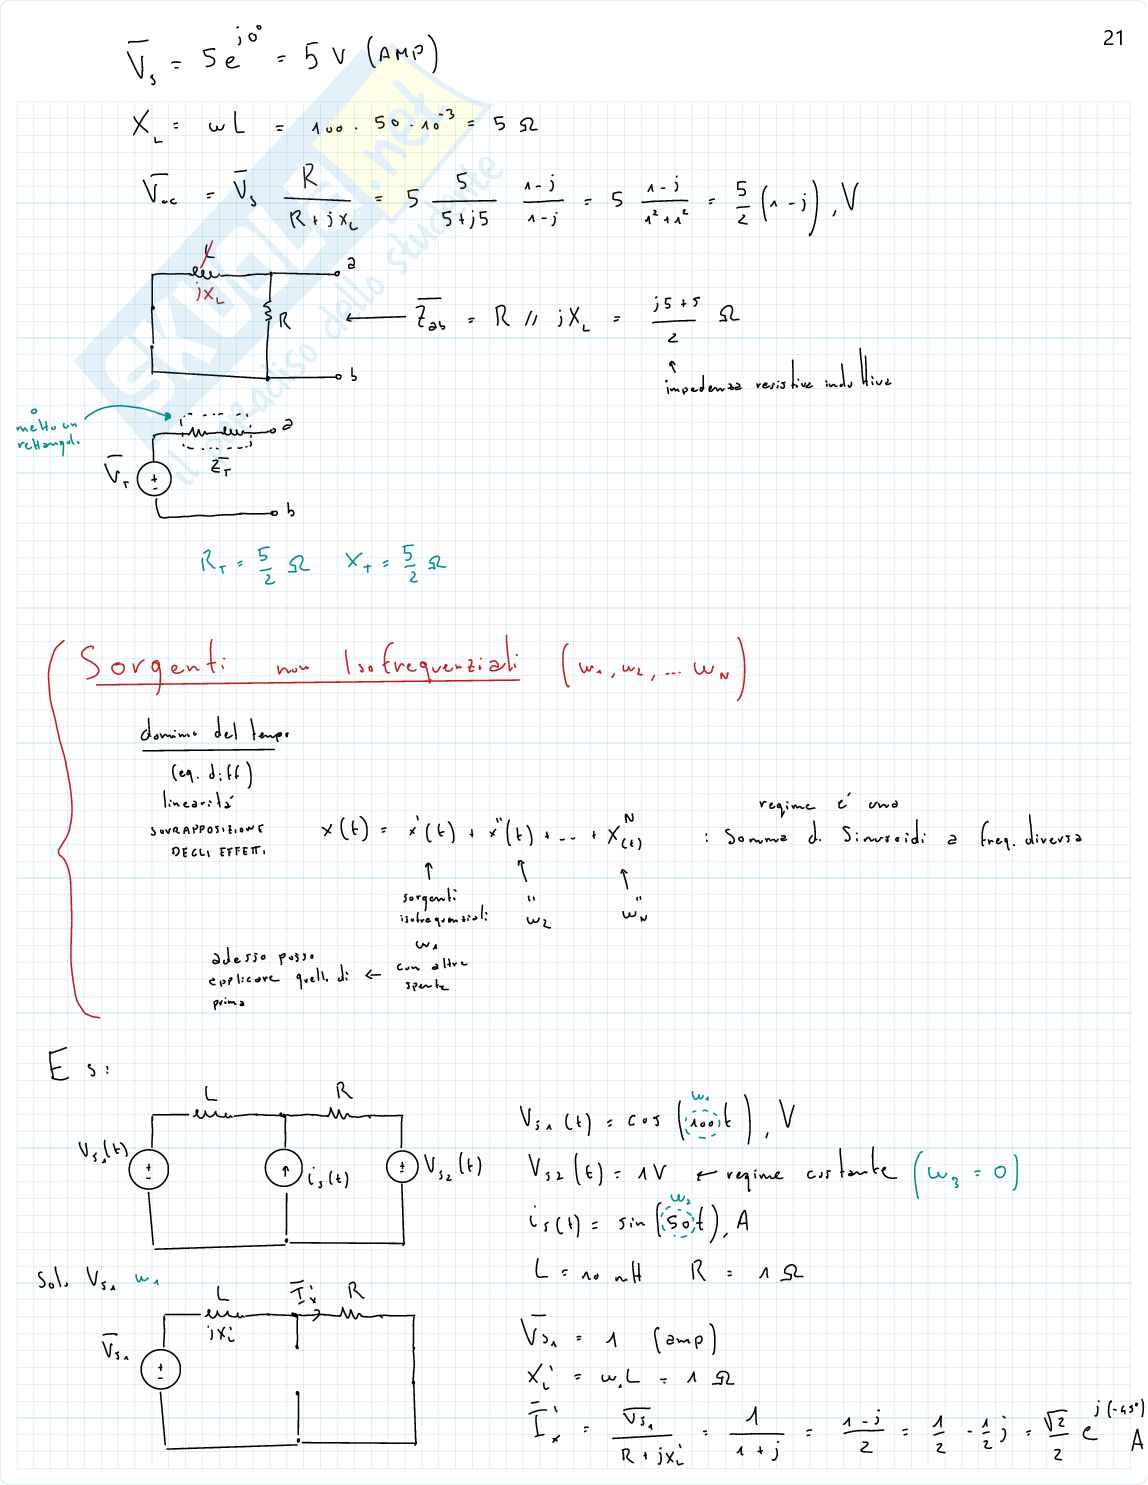 21
V̄s = 5e^j0° = 5 V (AMP)
X_L = ωL = 100 · 50 · 10^-3 = 5 Ω
V̄oc = V̄s R/(R + jX_L) = 5 5/(5 + j5) (1-j)/(1-j) = 5 (1-j)/(1²+1²) = 5/2 (1-j), V
L
jX_L
R
a
b
Z̄ab = R // jX_L = (j5 + 5)/2 Ω
impedenza resistiva induttiva
o
metto un
rettangolo
a
Z̄_T
V̄_T
+
-
b
R_T = 5/2 Ω X_T = 5/2 Ω
Sorgenti non Isofrequenziali (ω1, ω2, ... ωN)
dominio del tempo
(eq. diff)
linearità
SOVRAPPOSIZIONE
DEGLI EFFETTI
x(t) = x'(t) + x''(t) + ... + x^N(t)
regime è una
: Somma di Sinusoidi a freq. diversa
sorgenti
isofrequenziali
ω1
con altre
spente
"
ω2
"
ωN
adesso posso
applicare quell. di ←
prima
Es:
L R
Vs1(t)
+
-
is(t)
+
-
Vs2(t)
ω1
Vs1(t) = cos(100t), V
Vs2(t) = 1V ← regime costante (ω3 = 0)
ω2
is(t) = sin(50t), A
L = 10 mH R = 1 Ω
Sol. Vs1 ω1
L Ī'x R
jX'_L
V̄s1
+
-
V̄s1 = 1 (amp)
X'_L = ω1L = 1 Ω
Ī'x = V̄s1/(R + jX'_L) = 1/(1 + j) = (1-j)/2 = 1/2 - 1/2 j = √2/2 e^j(-45°) A
SKUOLA.net
il paradiso dello studente